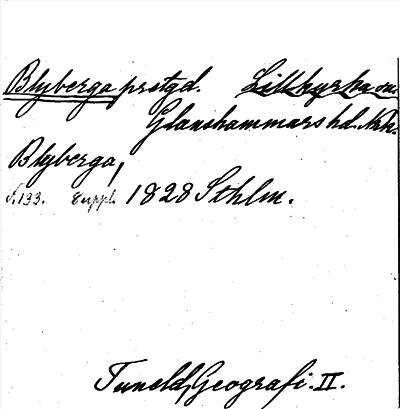 Blyberga prstgd. Lillkyrka sn.
Glanshammars hd. Nrk.
Blyberga,
s. 133. suppl. 1828 Sthlm.
Tuneld, Geografi. II.